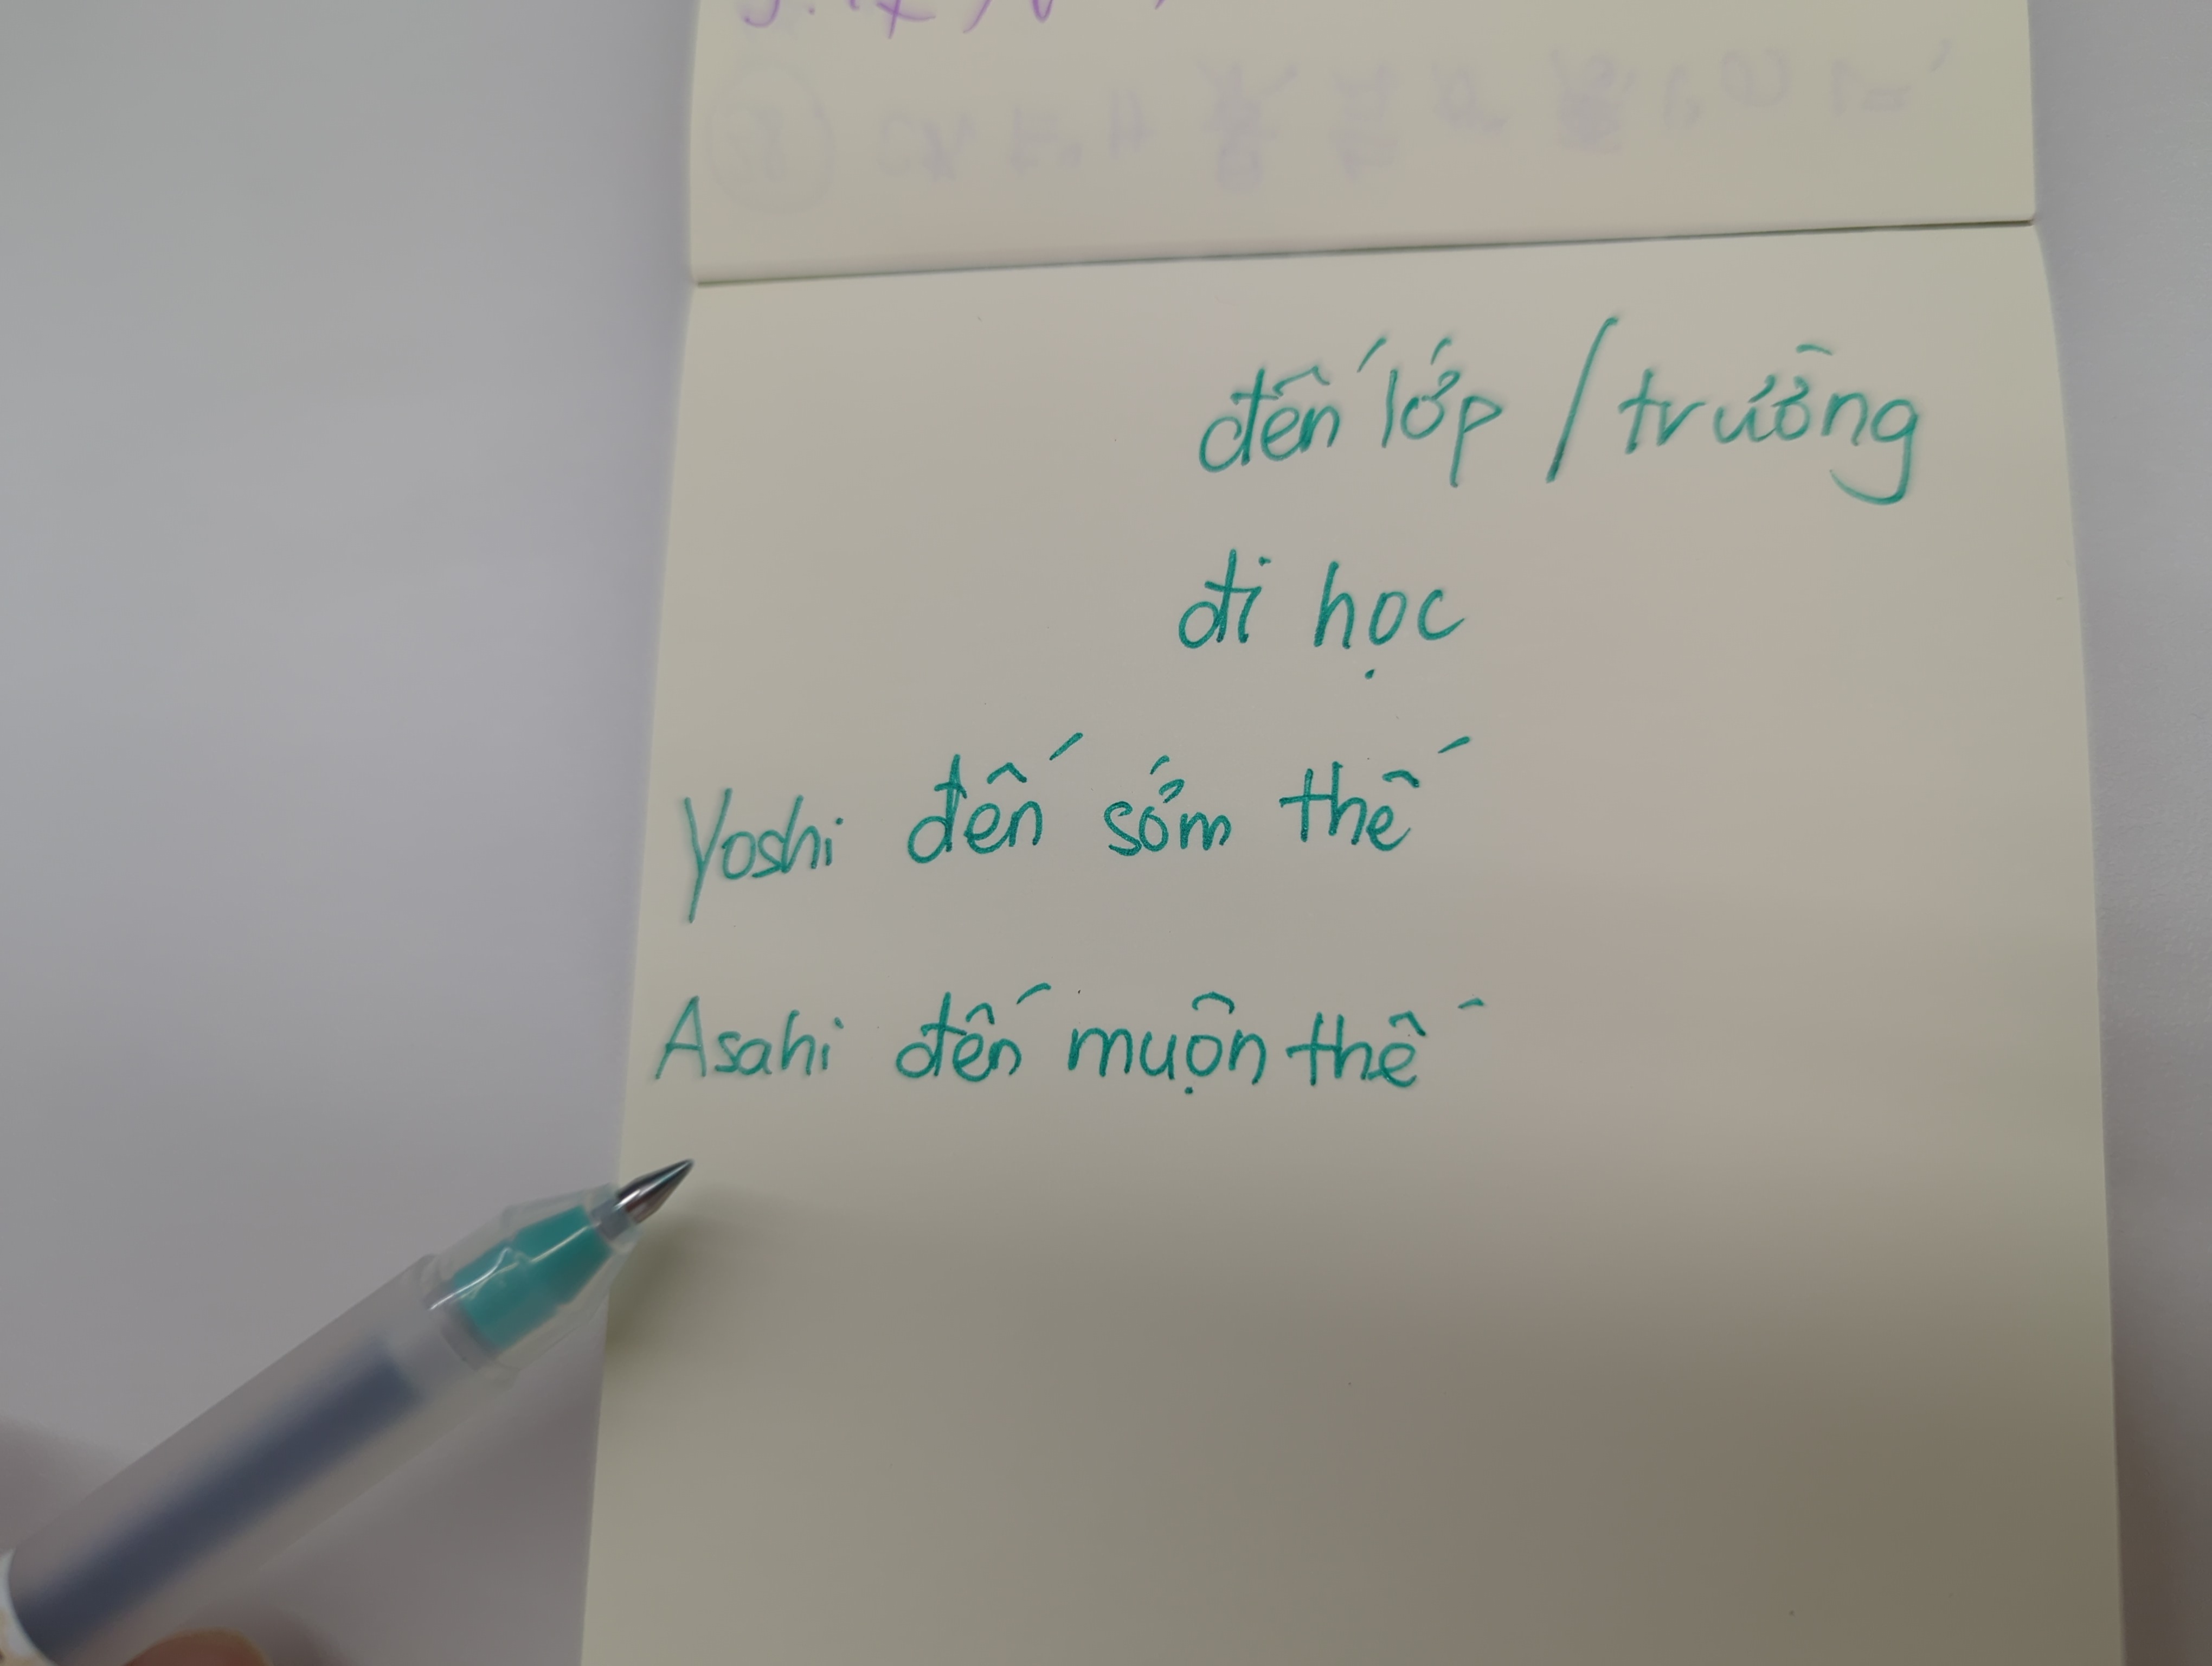 đến lớp / trường
đi học
Yoshi đến sớm thế
Asahi đến muộn thế